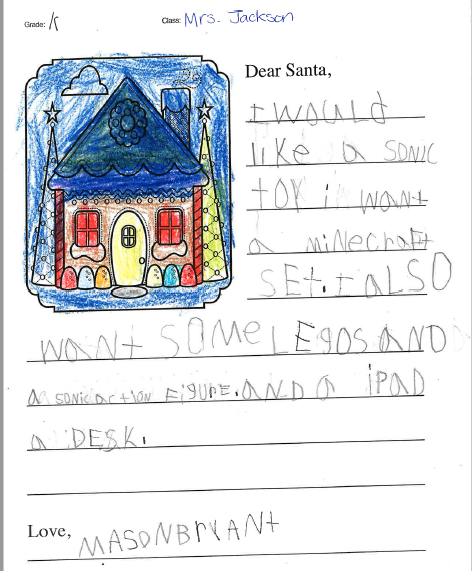 Grade: K
Class: Mrs. Jackson
Dear Santa,
I WOULD
like a SONIC
toy i want
a miNecraft
SET. I aLSO
waNt SOMe LEgOS aND
a SONic actioN FigURE. aND a iPaD
a DESK.
Love, MASONBRYANt